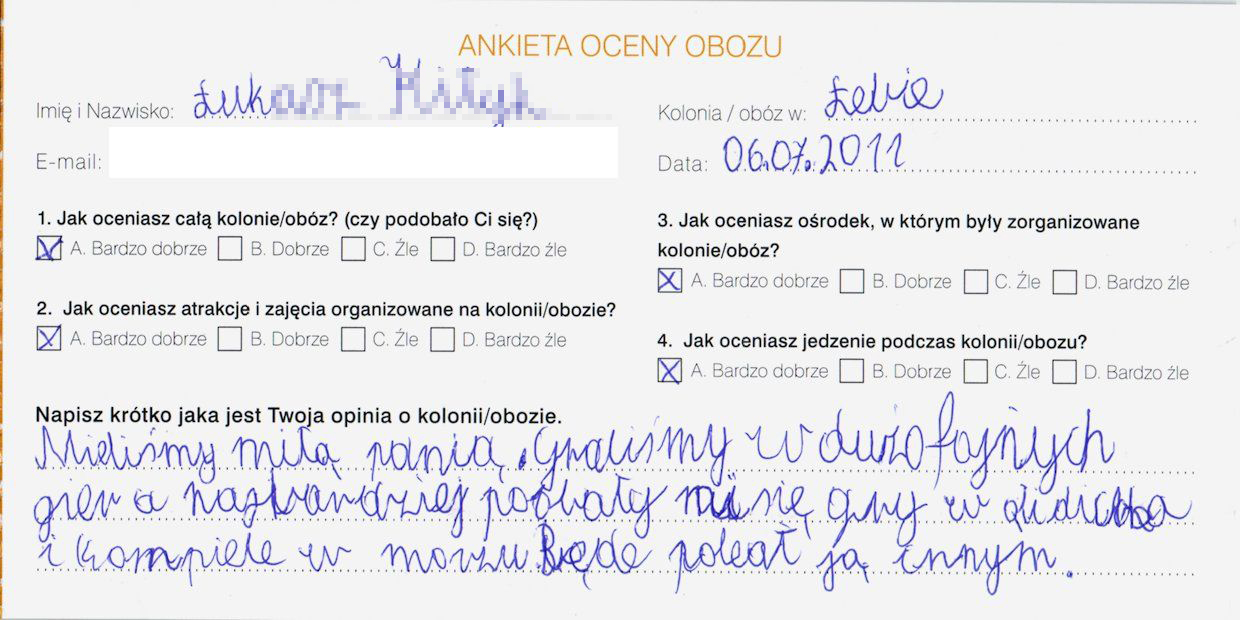 ANKIETA OCENY OBOZU
Imię i Nazwisko: Łukasz
Kolonia / obóz w: Łebie
E-mail:
Data: 06.07.2011
1. Jak oceniasz całą kolonie/obóz? (czy podobało Ci się?)
A. Bardzo dobrze B. Dobrze C. Źle D. Bardzo źle
2. Jak oceniasz atrakcje i zajęcia organizowane na kolonii/obozie?
A. Bardzo dobrze B. Dobrze C. Źle D. Bardzo źle
3. Jak oceniasz ośrodek, w którym były zorganizowane
kolonie/obóz?
A. Bardzo dobrze B. Dobrze C. Źle D. Bardzo źle
4. Jak oceniasz jedzenie podczas kolonii/obozu?
A. Bardzo dobrze B. Dobrze C. Źle D. Bardzo źle
Napisz krótko jaka jest Twoja opinia o kolonii/obozie.
Mieliśmy miłą panią. Graliśmy w dużo fajnych
gier a najbardziej pobały mi się gry w
i kompiele w morzu. Będe polecał ją innym.